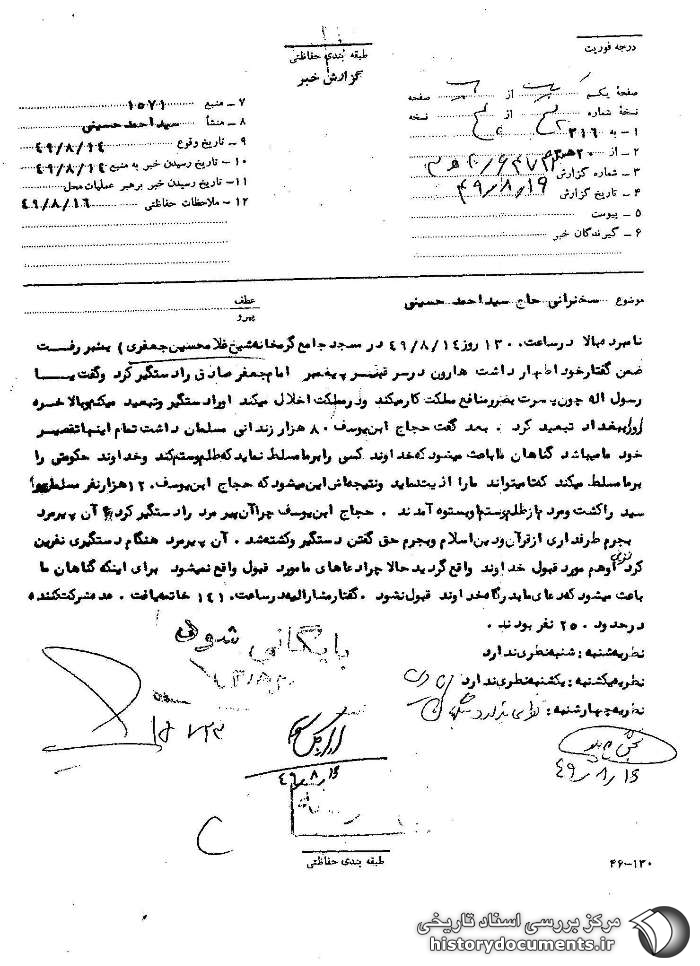 درجه فوریت
طبقه بندی حفاظتی
گزارش خبر
صفحهٔ یکم از صفحه
نسخهٔ شماره از نسخه
۱ ـ به ۳۱۶
۲ ـ از ۲۰ هـ ۳
۳ ـ شماره گزارش
۴ ـ تاریخ گزارش ۴۹/۸/۱۹
۵ ـ پیوست
۶ ـ گیرندگان خبر
۷ ـ منبع ۱۵۷۱
۸ ـ منشأ سید احمد حسینی
۹ ـ تاریخ وقوع ۴۹/۸/۱۴
۱۰ ـ تاریخ رسیدن خبر به منبع ۴۹/۸/۱۴
۱۱ ـ تاریخ رسیدن خبر برهبر عملیات محل
۱۲ ـ ملاحظات حفاظتی ۴۹/۸/۱۶
موضوع : سخنرانی حاج سید احمد حسینی
عطف
پیرو
نامبرده بالا در ساعت ۱۳۰۰ روز ۴۹/۸/۱۴ در مسجد جامع گرمخانه شیخ غلامحسین جعفری ) بمنبر رفت
ضمن گفتار خود اظهار داشت هارون در سر قبر پیغمبر امام جعفر صادق را دستگیر کرد و گفت یا
رسول اله چون پسرت بضرر منافع مملکت کار میکند و در مملکت اخلال میکند او را دستگیر و تبعید میکنم بالاخره
او را ببغداد تبعید کرد . بعد گفت حجاج ابن یوسف ۸۰ هزار زندانی مسلمان داشت تمام اینها تقصیر
خود ما میباشد گناهان ما باعث میشود که خداوند کسی را بر ما مسلط نماید که ظلم و ستم کند و خداوند حکومتی را
بر ما مسلط میکند که تا میتواند ما را اذیت نماید و نتیجه اش این میشود که حجاج ابن یوسف ۱۲ هزار نفر
سید را کشت و مردم از ظلم و ستم او بستوه آمدند . حجاج ابن یوسف چرا آن پیر مرد را دستگیر کرد آن پیر مرد
بجرم طرفداری از قرآن و دین اسلام و بجرم حق گفتن دستگیر و کشته شد . آن پیرمرد هنگام دستگیری نفرین
کرد او هم مورد قبول خداوند واقع گردید حالا چرا دعاهای ما مورد قبول واقع نمیشود برای اینکه گناهان ما
باعث میشود که دعای ما بدرگاه خداوند قبول نشود . گفتار مشارالیه در ساعت ۱۴۱۰ خاتمه یافت . عده شرکت کننده
در حدود ۲۵۰ نفر بودند .
نظریه شنبه : شنبه نظری ندارد
نظریه یکشنبه : یکشنبه نظری ندارد
نظریه چهارشنبه : نظری ندارد
بایگانی شود
۴۹/۸/۱۶
۴۹/۸/۱۶
طبقه بندی حفاظتی
۴۶-۱۳۰
مرکز بررسی اسناد تاریخی
historydocuments.ir